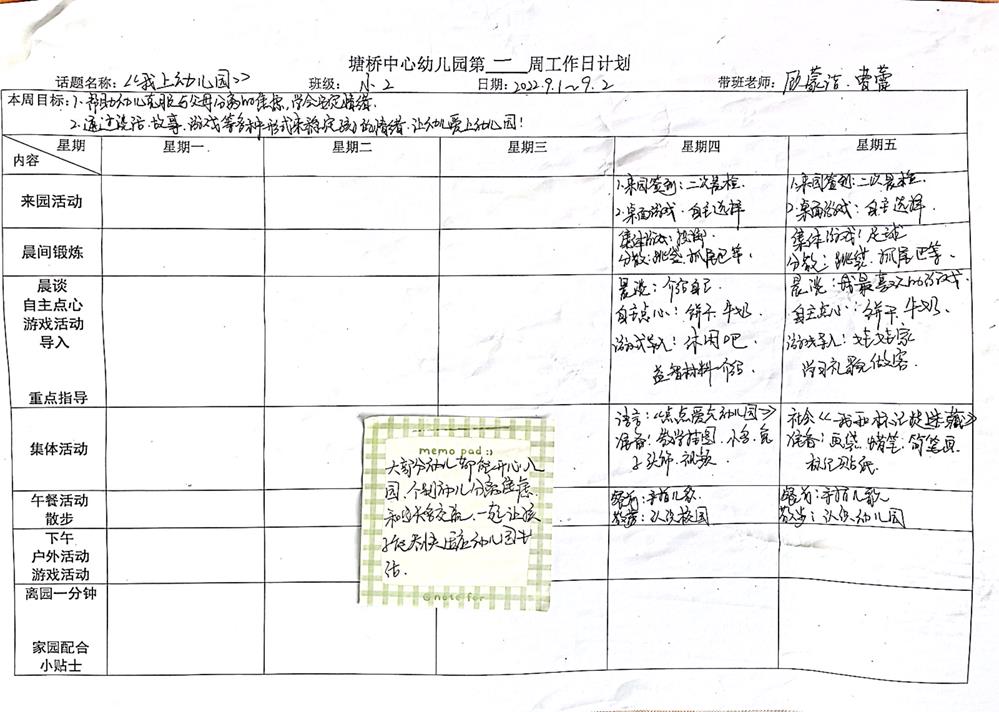 塘桥中心幼儿园第 一 周工作日计划
话题名称:《我上幼儿园》 班级: 小2 日期: 2022.9.1~9.2 带班老师: 欣蒙洁. 曹蕾
本周目标: 1. 帮助幼儿克服与父母分离的焦虑, 学会安定情绪.
2. 通过谈话.故事.游戏等多种形式来稳定孩子的情绪.让幼儿爱上幼儿园!
星期 内容 星期一 星期二 星期三 星期四 星期五
来园活动
1.来园签到:二次晨检.
2.桌面游戏.自主选择
1.来园签到:二次晨检.
2.桌面游戏:自主选择.
晨间锻炼
集体游戏:
分散:跳袋.抓尾巴等.
集体游戏:足球
分散:跳袋.抓尾巴等.
晨谈
自主点心
游戏活动
导入
重点指导
晨谈:介绍自己.
自主点心:饼干.牛奶.
游戏导入:休闲吧.
益智材料介绍.
晨谈:我最喜欢的游戏
自主点心:饼干.牛奶.
游戏导入:娃娃家
学习礼貌做客.
集体活动
语言:《点点爱上幼儿园》
准备:教学挂图.小鸟.兔
子头饰.视频.
社会《我和标记捉迷藏》
准备:画袋.蜡笔.简笔画
标记贴纸.
午餐活动
散步
餐前:手指儿歌.
散步:认识校园
餐前:手指儿歌
散步:认识幼儿园
下午
户外活动
游戏活动
离园一分钟
家园配合
小贴士
memo pad :)
大部分幼儿都能开心入
园.个别幼儿分离焦虑.
和家长多交流.一起让孩
子尽快适应幼儿园生
活.
note for